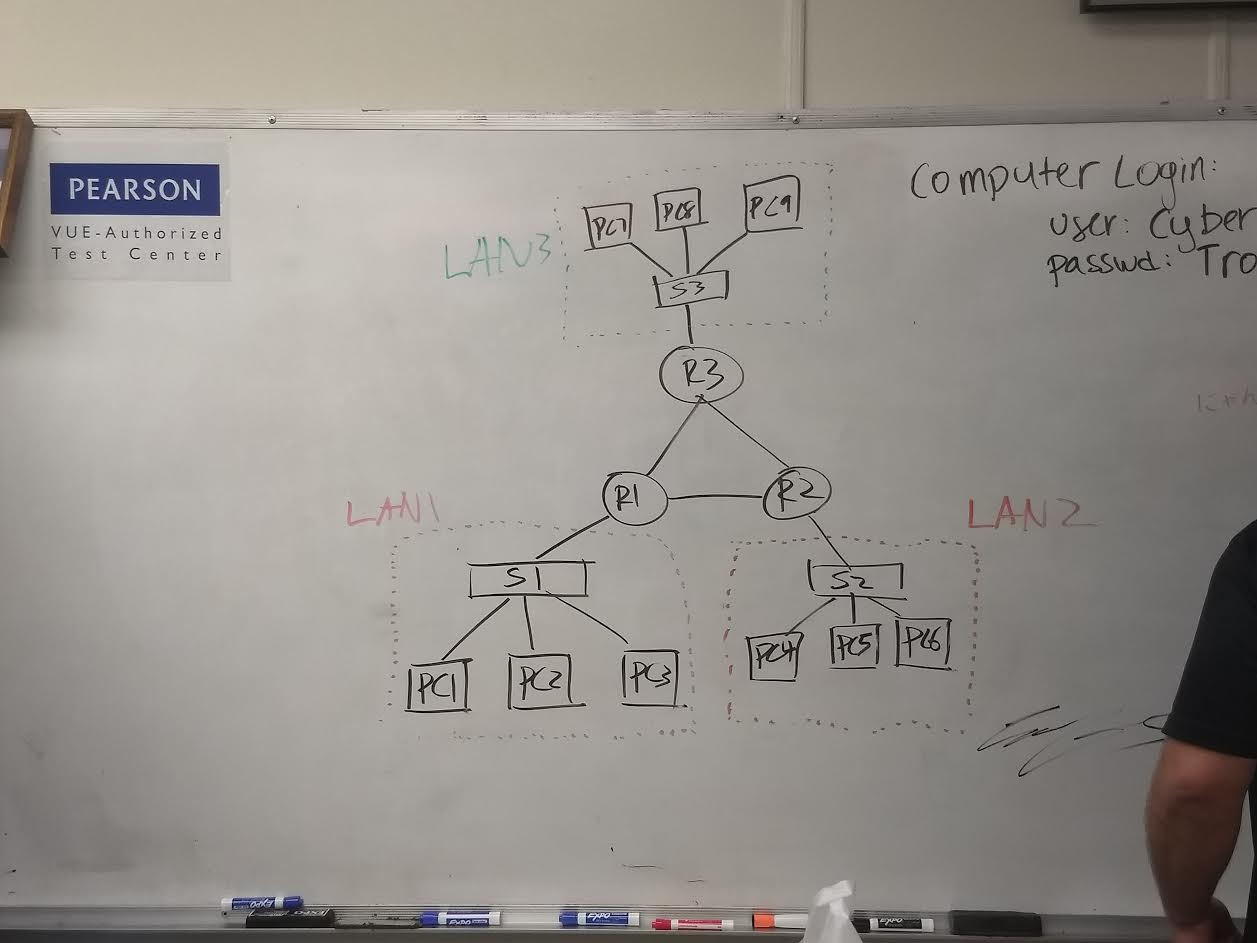 PEARSON
VUE-Authorized
Test Center
Computer Login:
user: Cyber
passwd: Tro
LAN3
PC7 PC8 PC9
S3
R3
R1 R2
LAN1
S1
PC1 PC2 PC3
LAN2
S2
PC4 PC5 PC6
EXPO
EXPO
EXPO
EXPO
EXPO
EXPO